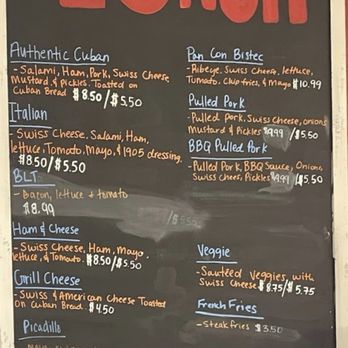 LUNCH
Authentic Cuban
- Salami, Ham, Pork, Swiss Cheese
Mustard & pickles. Toasted on
Cuban Bread $8.50/$5.50
Italian
- Swiss Cheese, Salami, Ham,
lettuce, Tomato, Mayo, & 1905 dressing.
$8.50/$5.50
BLT
- Bacon, lettuce & tomato
$8.99
Ham & Cheese
- Swiss Cheese, Ham, Mayo,
lettuce, & Tomato. $8.50/$5.50
Grill Cheese
- Swiss & American Cheese Toasted
On Cuban Bread. $4.50
Picadillo
Pan Con Bistec
- Ribeye, Swiss Cheese, lettuce,
Tomato, Chup fries, & Mayo $10.99
Pulled Pork
- Pulled pork, Swiss cheese, onions
Mustard & Pickles $9.99/$5.50
BBQ Pulled Pork
- Pulled Pork, BBQ Sauce, Onions,
Swiss Cheese, Pickles $9.99/$5.50
Veggie
- Sauteed Veggies, with
Swiss Cheese $8.75/$5.75
French Fries
- Steak fries $3.50